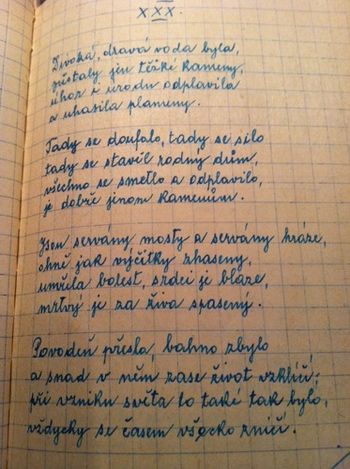 XXX.
Divoká, dravá voda byla,
zůstaly jen těžké kameny,
úhor i úrodu odplavila
a uhasila plameny.
Tady se doufalo, tady se silo
tady se stavěl rodný dům,
všechno se smetlo a odplavilo,
je dobře jenom kamenům.
Jsou servány mosty a servány hráze,
ohně jak výčitky zhaseny,
umřela bolest, srdci je blaze,
mrtvý je za živa spasený.
Povodeň přešla, bahno zbylo
a snad v něm zase život vzklíčí;
při vzniku světa to také tak bylo,
vždycky se časem všecko zničí.